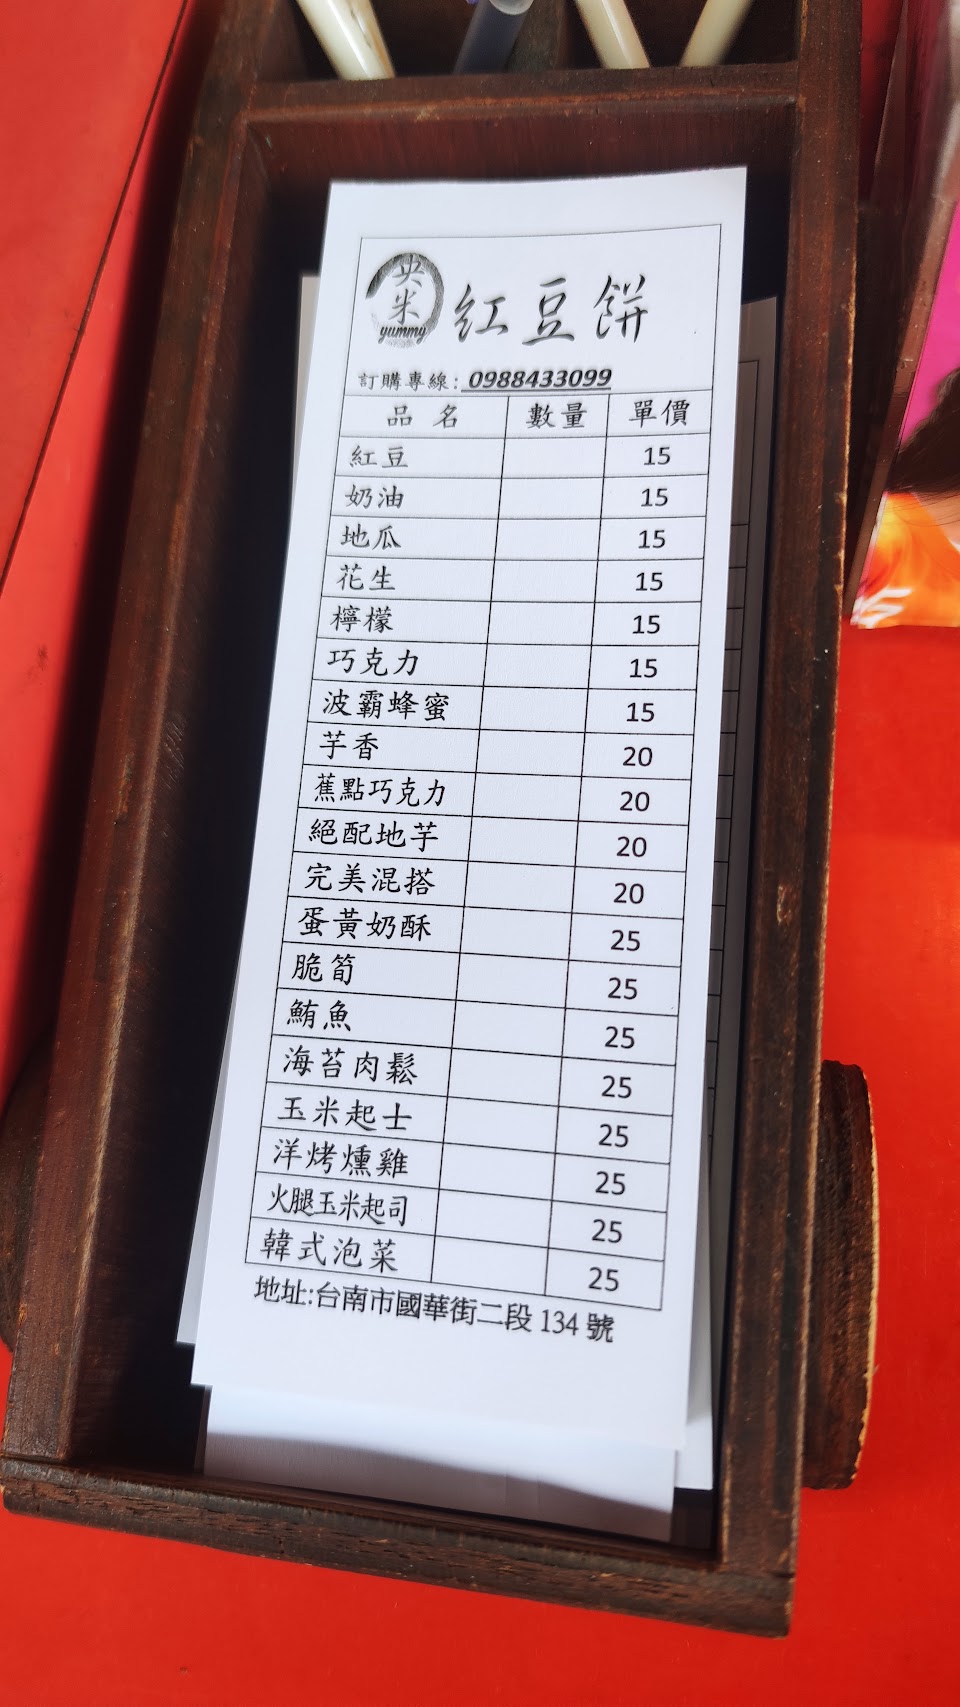 央米
yummy
紅豆餅
訂購專線: 0988433099
品名 數量 單價
紅豆 15
奶油 15
地瓜 15
花生 15
檸檬 15
巧克力 15
波霸蜂蜜 15
芋香 20
蕉點巧克力 20
絕配地芋 20
完美混搭 20
蛋黃奶酥 25
脆筍 25
鮪魚 25
海苔肉鬆 25
玉米起士 25
洋烤燻雞 25
火腿玉米起司 25
韓式泡菜 25
地址:台南市國華街二段 134 號